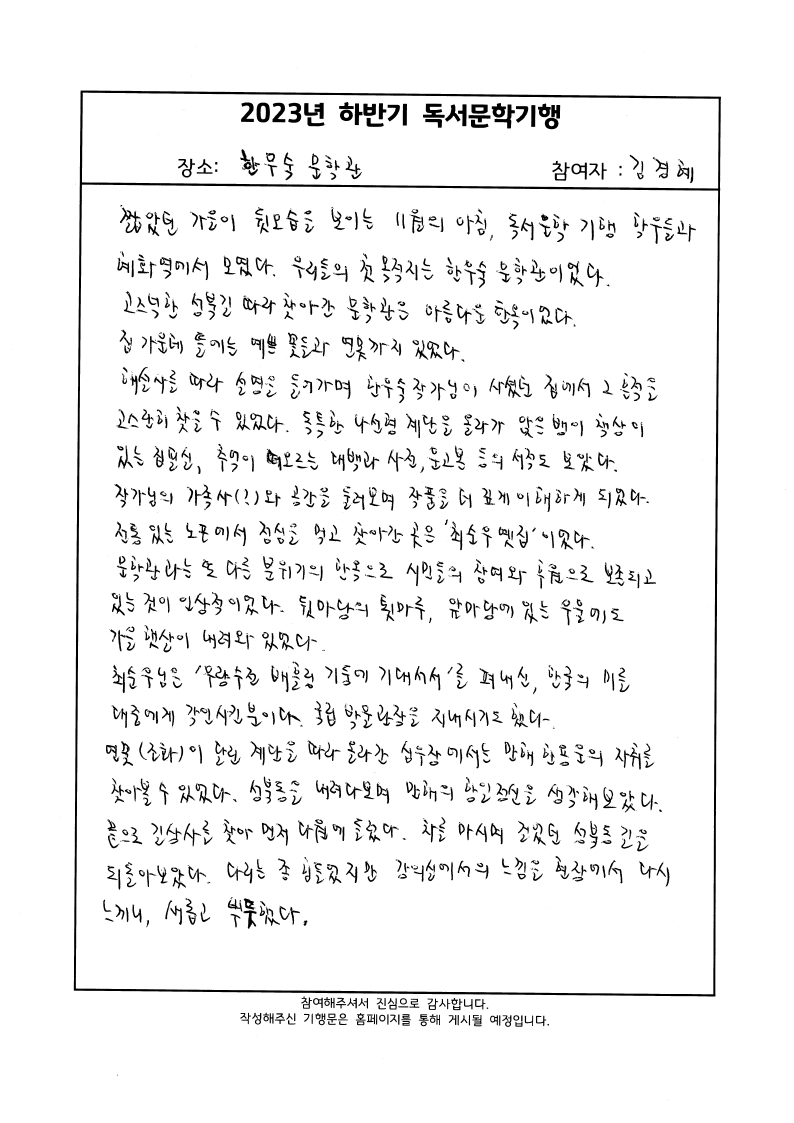 2023년 하반기 독서문학기행
장소: 한무숙 문학관 참여자 : 김경혜
짧았던 가을이 뒷모습을 보이는 11월의 아침, 독서문학 기행 학우들과
혜화역에서 모였다. 우리들의 첫 목적지는 한무숙 문학관이었다.
고즈넉한 성북길 따라 찾아간 문학관은 아름다운 한옥이었다.
집 가운데 뜰에는 예쁜 꽃들과 연못까지 있었다.
해설사를 따라 설명을 들어가며 한무숙 작가님이 사셨던 집에서 그 흔적을
고스란히 찾을 수 있었다. 독특한 나선형 계단을 올라가 앉은뱅이 책상이
있는 집필실, 추억이 떠오르는 대백과 사전, 문고본 등의 서적도 보았다.
작가님의 가족사(?)와 공간을 둘러보며 작품을 더 깊게 이해하게 되었다.
전통 있는 노포에서 점심을 먹고 찾아간 곳은 '최순우 옛집'이었다.
문학관과는 또 다른 분위기의 한옥으로 시민들의 참여와 후원으로 보존되고
있는 것이 인상적이었다. 뒷마당의 툇마루, 앞마당에 있는 우물에도
가을 햇살이 내려와 있었다.
최순우님은 '무량수전 배흘림 기둥에 기대서서'를 펴내신, 한국의 미를
대중에게 각인시킨 분이다. 국립 박물관장을 지내시기도 했다.
연꽃(조화)이 달린 계단을 따라 올라간 심우장에서는 만해 한용운의 자취를
찾아볼 수 있었다. 성북동을 내려다보며 만해의 항일정신을 생각해보았다.
끝으로 길상사를 찾아 먼저 다원에 들렀다. 차를 마시며 걸었던 성북동 길을
되돌아보았다. 다리는 좀 힘들었지만 강의실에서의 느낌을 현장에서 다시
느끼니, 새롭고 뿌듯했다.
참여해주셔서 진심으로 감사합니다.
작성해주신 기행문은 홈페이지를 통해 게시될 예정입니다.